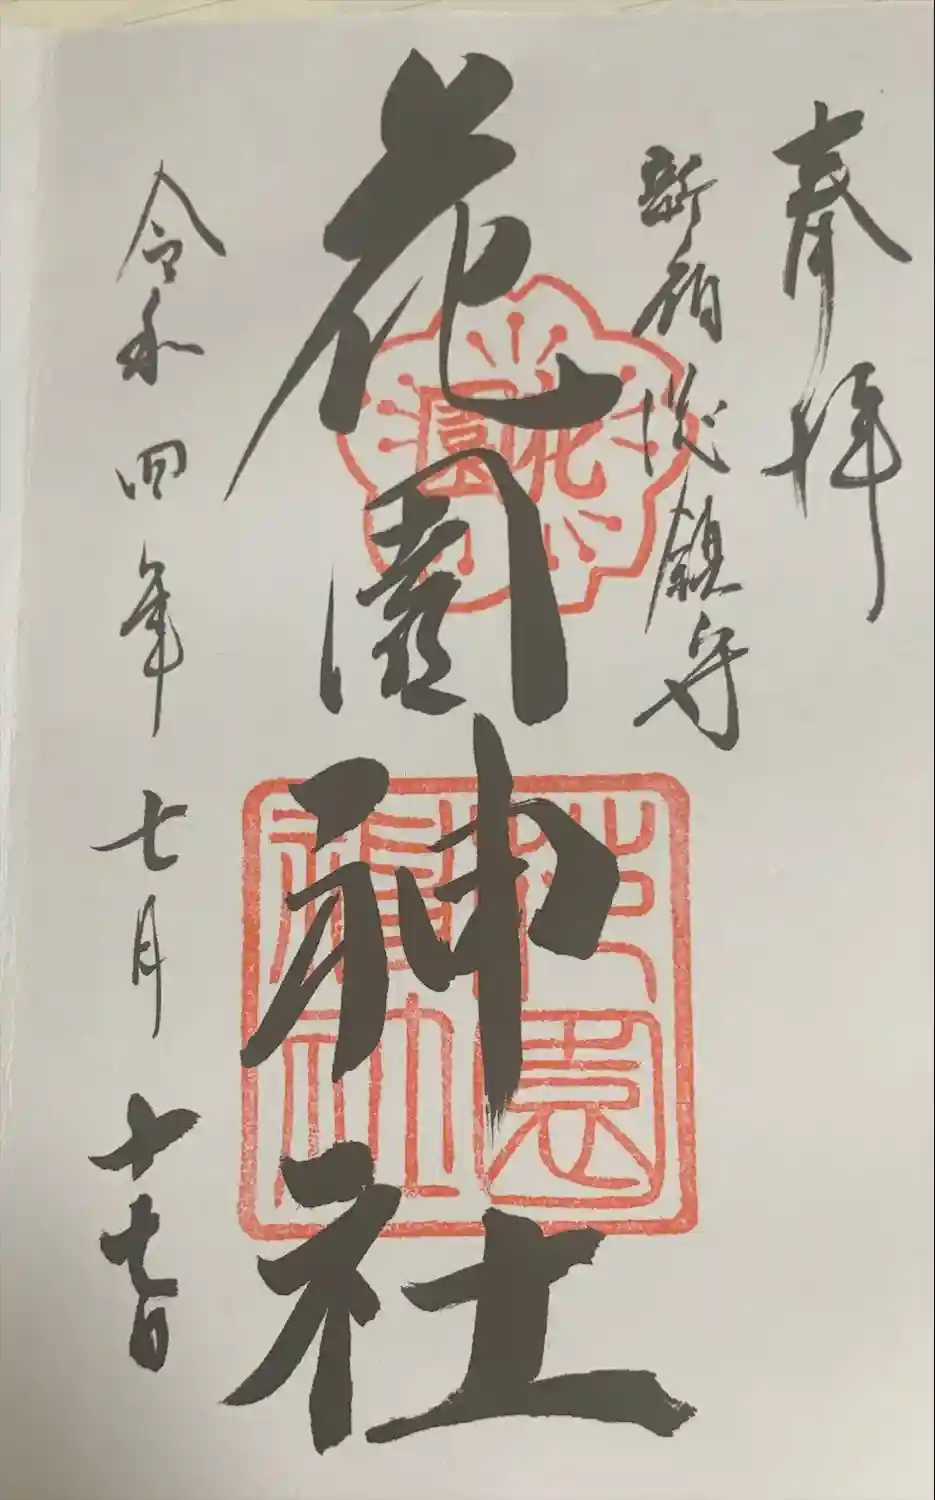 奉拝
新宿総鎮守
花園神社
花園
花園
神社
令和四年七月十七日